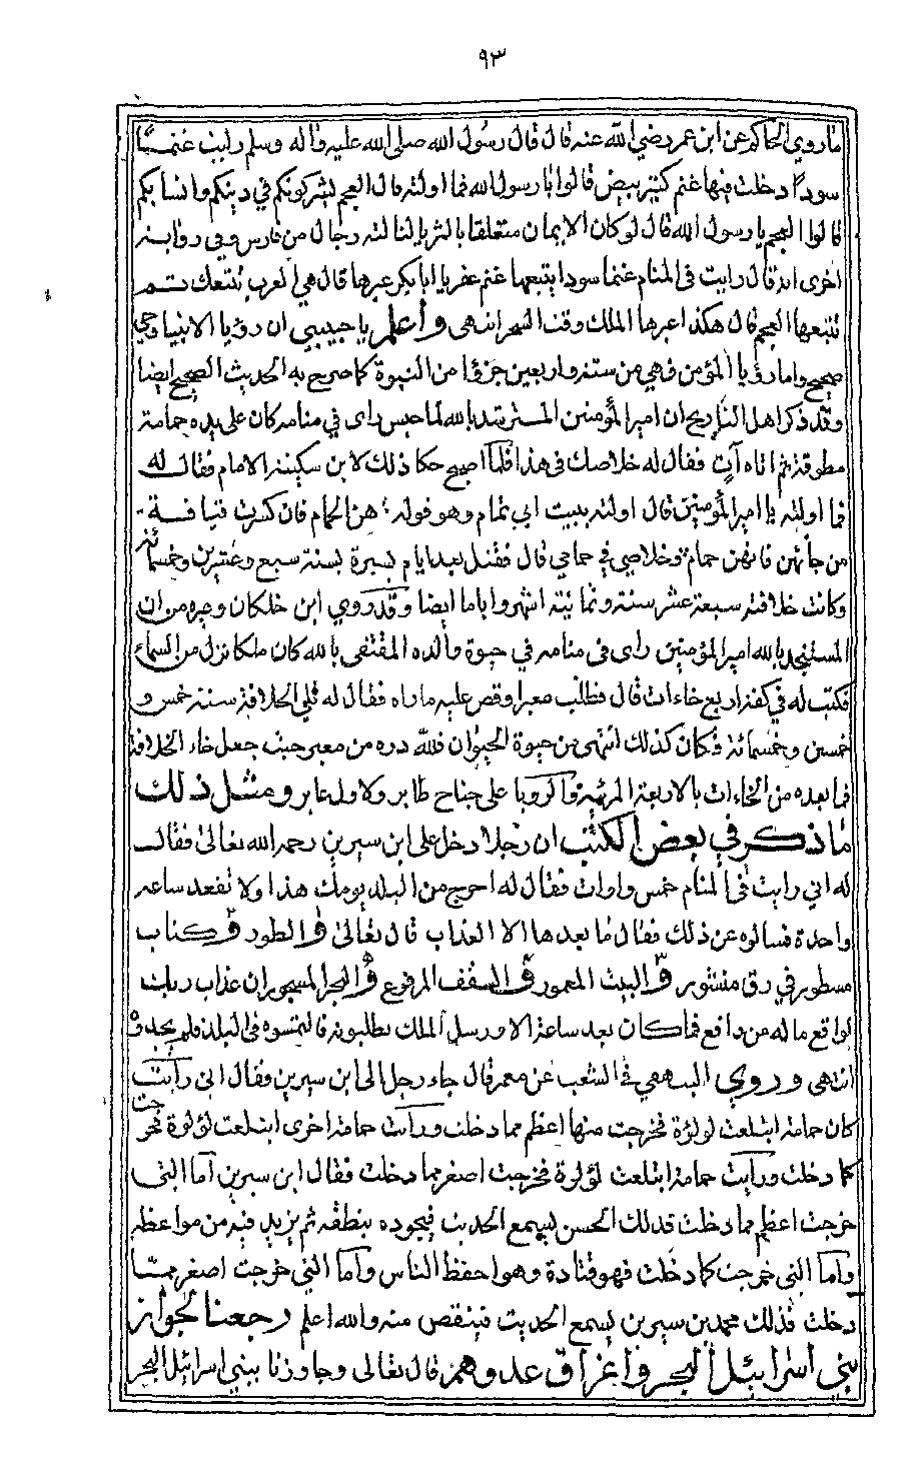 ٩٣
ما روي الحاكم عن ابن عمر رضي الله عنه قال قال رسول الله صلى الله عليه واله وسلم رايت غنمًا
سودًا دخلت فيها غنم كثير بيض قالوا يا رسول الله فما اولته قال العجم يشركونكم في دينكم وانسابكم
قالوا العجم يا رسول الله قال لو كان الايمان متعلقا بالثريا لناله رجال من فارس وفي رواية
اخرى انه قال رايت في المنام غنما سودا يتبعها غنم عفر يا ابا بكر عبرها قال هي العرب تتبعك ثم
تتبعها العجم قال هكذا عبرها الملك وقت السحر انتهى واعلم يا حبيبي ان رؤيا الانبيا وحي
صحيح واما رؤيا المؤمن فهي من ستة واربعين جزؤا من النبوة كما صرح به الحديث الصحيح ايضا
وقد ذكر اهل التاريخ ان امير المؤمنين المسترشد بالله لما حبس راى في منامه كان على يده حمامة
مطوقة ثم اتاه آت فقال له خلاصك في هذا فلما اصبح حكا ذلك لابن سكينة الامام فقال له
فما اولته يا امير المؤمنين قال اولته ببيت ابي تمام وهو قوله هن الحمام فان كسرت عيافة
من حائهن فانهن حمام وخلاصي في حمامي قال فقتل بعد ايام يسيرة بسنة سبع وعشرين وخمسمائة
وكانت خلافته سبعة عشر سنة وثمانية اشهر واياما ايضا وقد روي ابن خلكان وغيره من ان
المستنجد بالله امير المؤمنين راى في منامه في حيوة والده المقتفى بالله كان ملكا نزل من السماء
فكتب له في كفه اربع خاءات قال فطلب معبرا وقص عليه ما راه فقال له تلي الخلافة سنة خمس و
خمسين وخمسمائة فكان كذلك انتهى من حيوة الحيوان فلله دره من معبر حيث جعل خاء الخلافة
فما بعده من الخاءات بالاربعة المرئية والرويا على جناح طاير ولاول عابر ومثل ذلك
ما ذكر في بعض الكتب ان رجلا دخل على ابن سيرين رحمه الله تعالى فقال
له اني رايت في المنام خمس واوات فقال له اخرج من البلد يومك هذا ولا تقعد ساعه
واحدة فسالوه عن ذلك فقال ما بعدها الا العذاب قال تعالى والطور وكتاب
مسطور في رق منشور والبيت المعمور والسقف المرفوع والبحر المسجور ان عذاب ربك
لواقع ماله من دافع فما كان بعد ساعة الا ورسل الملك يطلبونه فالتمسوه في البلد فلم يجدوه
انتهى وروي البيهقي في الشعب عن معمر قال جاء رجل الى ابن سيرين فقال اني رايت
كان حمامة ابتلعت لؤلؤة فخرجت منها اعظم مما دخلت ورايت حمامة اخرى ابتلعت لؤلؤة فخرجت
كما دخلت ورايت حمامة ابتلعت لؤلوة فخرجت اصغر مما دخلت فقال ابن سيرين اما التى
خرجت اعظم مما دخلت فذلك الحسن يسمع الحديث فيجوده بنطقه ثم يزيد فيه من مواعظه
واما التي خرجت كما دخلت فهو قتادة وهو احفظ الناس واما التي خرجت اصغر مما
دخلت فذلك محمد بن سيرين يسمع الحديث فينقص منه والله اعلم رجعنا لجواز
بني اسرائيل البحر واغراق عدوهم قال تعالى وجاوزنا ببني اسرائيل البحر